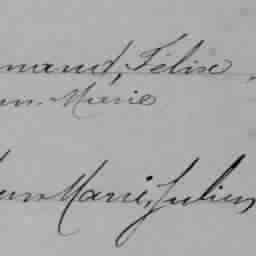 nand, Félix,
Marie
Marie, Julien